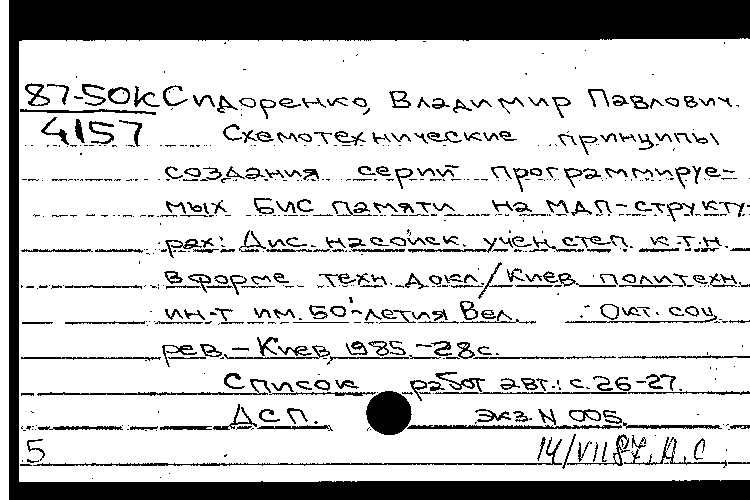 87-50К Сидоренко, Владимир Павлович.
4157 Схемотехнические принципы
создания серий программируе-
мых БИС памяти на МДП-структу-
рах: Дис. на соиск. учен. степ. к.т.н.
в форме техн. докл/Киев политехн.
ин-т им. 50-летия Вел. Окт. соц
рев. - Киев, 1985. - 28с.
Список работ авт.: с. 26-27.
ДСП. экз. N 005.
5 14/VII 87. А.С.